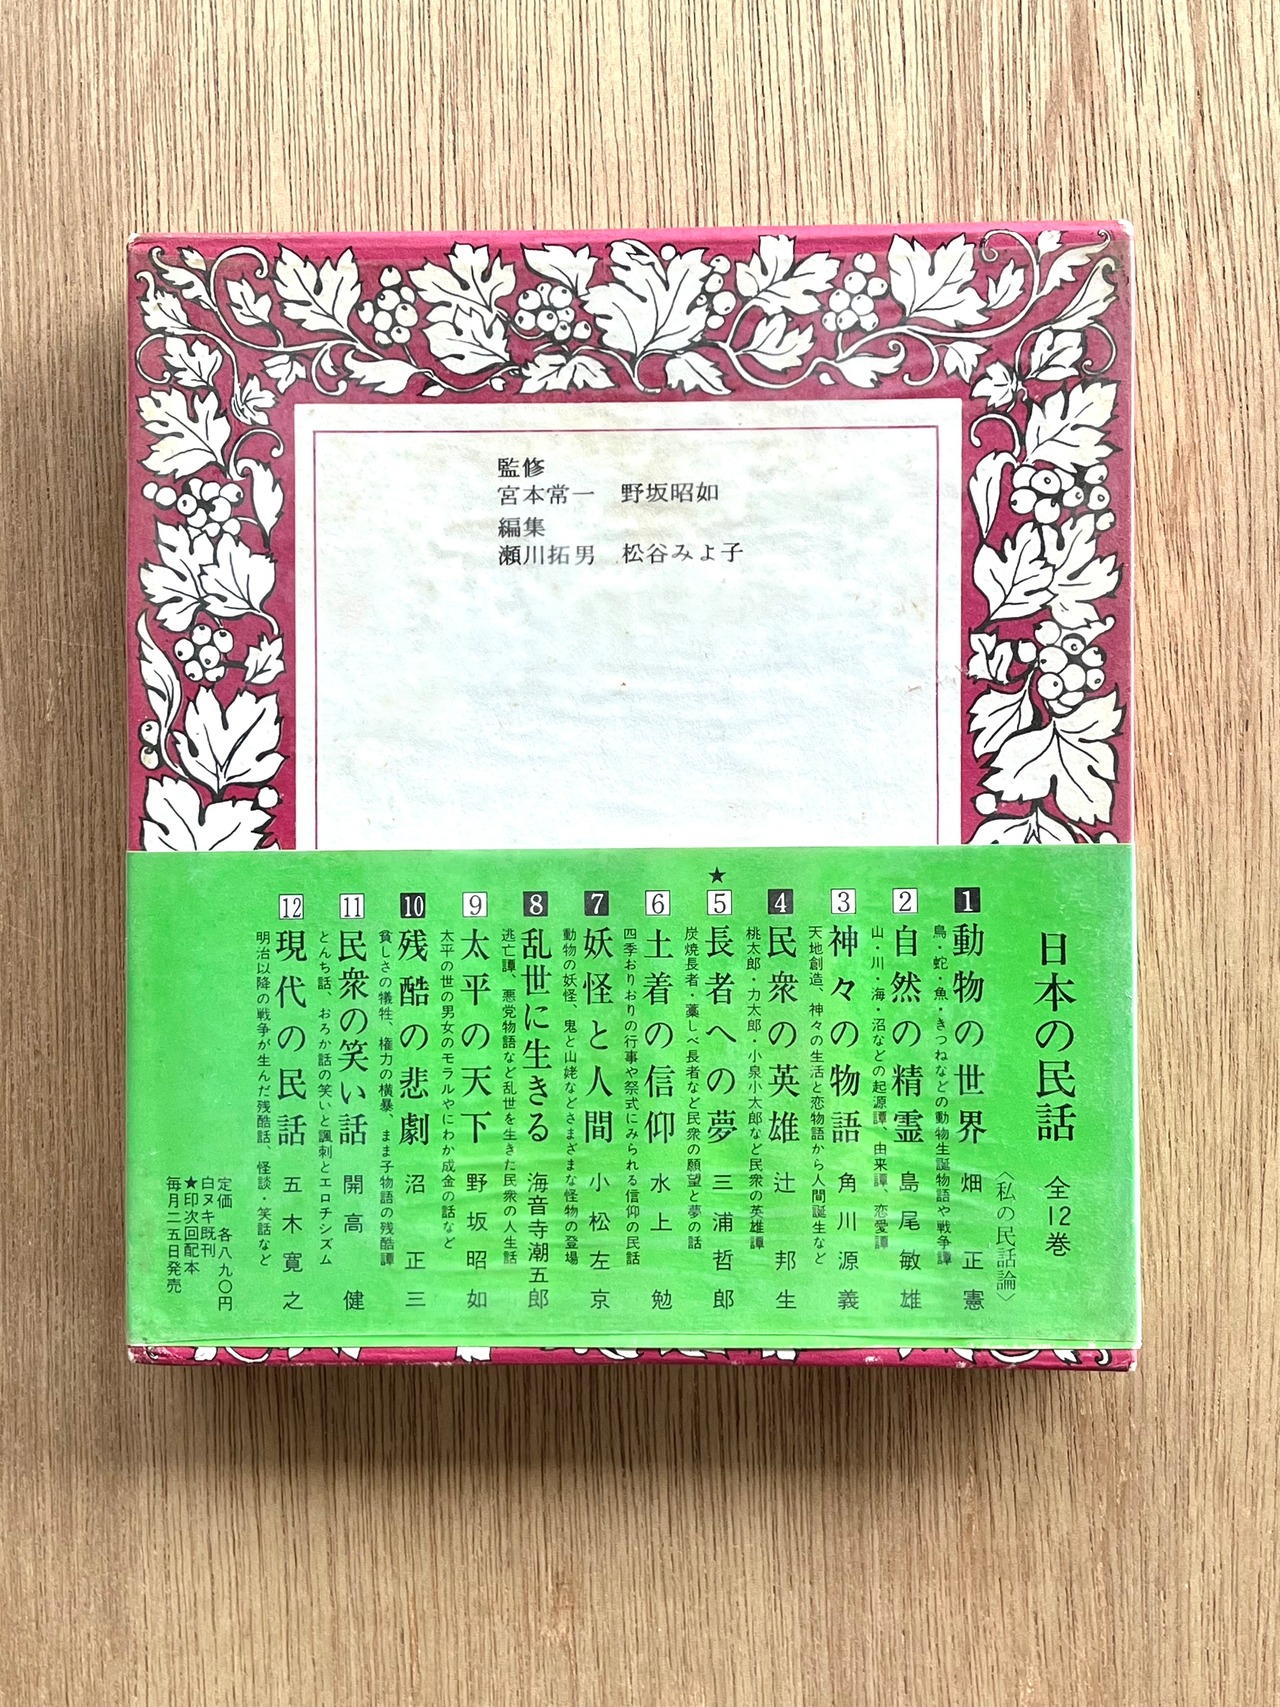 監修
宮本常一 野坂昭如
編集
瀬川拓男 松谷みよ子
日本の民話 全12巻
〈私の民話論〉
1 動物の世界 畑正憲
鳥・蛇・魚・きつねなどの動物生誕物語や戦争譚
2 自然の精霊 島尾敏雄
山・川・海・沼などの起源譚、由来譚、恋愛譚
3 神々の物語 角川源義
天地創造、神々の生活と恋物語から人間誕生など
4 民衆の英雄 辻邦生
桃太郎・力太郎・小泉小太郎など民衆の英雄譚
★
5 長者への夢 三浦哲郎
炭焼長者・藁しべ長者など民衆の願望と夢の話
6 土着の信仰 水上勉
四季おりおりの行事や祭式にみられる信仰の民話
7 妖怪と人間 小松左京
動物の妖怪、鬼と山姥などさまざまな怪物の登場
8 乱世に生きる 海音寺潮五郎
逃亡譚、悪党物語など乱世を生きた民衆の人生話
9 太平の天下 野坂昭如
太平の世の男女のモラルやにわか成金の話など
10 残酷の悲劇 沼正三
貧しさの犠牲、権力の横暴、まま子物語の残酷譚
11 民衆の笑い話 開高健
とんち話、おろか話の笑いと諷刺とエロチシズム
12 現代の民話 五木寛之
明治以降の戦争が生んだ残酷話、怪談・笑話など
定価 各八九〇円
白ヌキ既刊
★印次回配本
毎月二五日発売